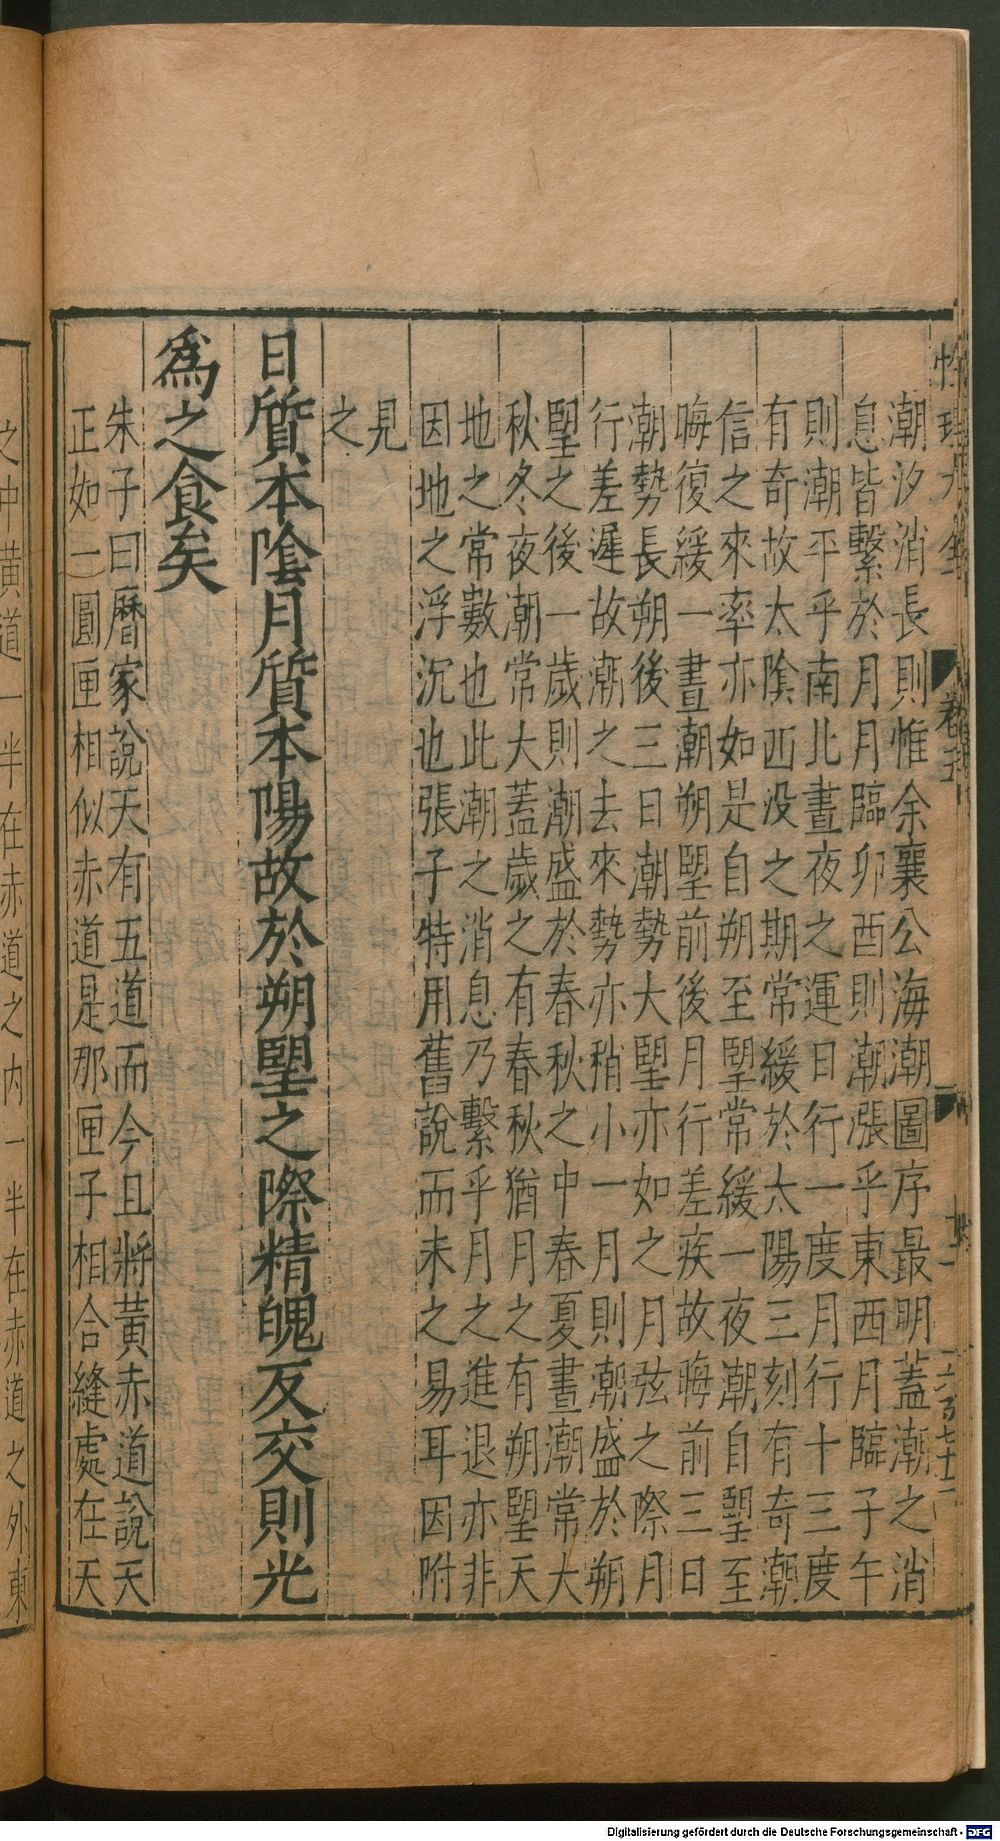 潮汐消長則惟余襄公海潮圖序最明蓋潮之消
息皆繫於月月臨卯酉則潮漲乎東西月臨子午
則潮平乎南北晝夜之運日行一度月行十三度
有奇故太陰西没之期常緩於太陽三刻有奇潮
信之來率亦如是自朔至朢常緩一夜潮自朢至
晦復緩一晝潮朔朢前後月行差疾故晦前三日
潮勢長朔後三日潮勢大朢亦如之月弦之際月
行差遲故潮之去來勢亦稍小一月則潮盛於朔
朢之後一歲則潮盛於春秋之中春夏晝潮常大
秋冬夜潮常大蓋歲之有春秋猶月之有朔朢天
地之常數也此潮之消息乃繫乎月之進退亦非
因地之浮沉也張子特用舊說而未之易耳因附
見
之
日質本陰月質本陽故於朔朢之際精魄反交則光
爲之食矣
朱子曰曆家說天有五道而今且將黃赤道說天
正如一圓匣相似赤道是那匣子相合縫處在天
之中黃道一半在赤道之内一半在赤道之外東
卷五
六百七十二
Digitalisierung gefördert durch die Deutsche Forschungsgemeinschaft - DFG